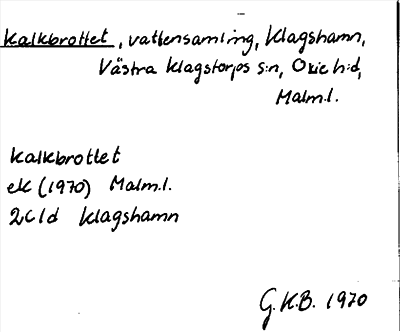 Kalkbrottet, vattensamling, Klagshamn,
Västra Klagstorps s:n, Oxie h:d,
Malm.l.
Kalkbrottet
ek (1970) Malm.l.
2C1d Klagshamn
G.K.B. 1970